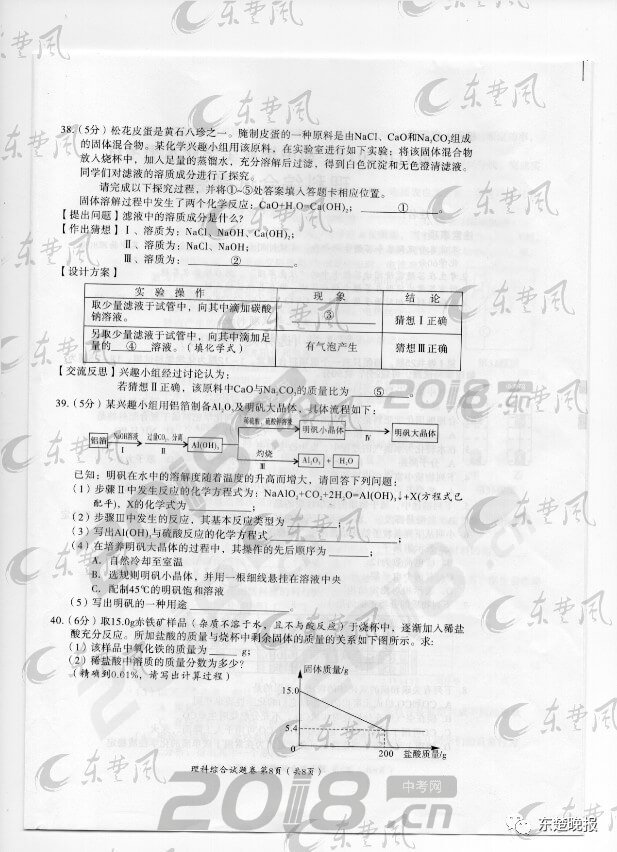 38.(5分)松花皮蛋是黄石八珍之一。腌制皮蛋的一种原料是由NaCl、CaO和Na₂CO₃组成
的固体混合物。某化学兴趣小组用该原料,在实验室进行如下实验;将该固体混合物
放入烧杯中,加入足量的蒸馏水,充分溶解后过滤,得到白色沉淀和无色澄清滤液。
同学们对滤液的溶质成分进行了探究。
请完成以下探究过程,并将①~⑤处答案填入答题卡相应位置。
固体溶解过程中发生了两个化学反应:CaO+H₂O=Ca(OH)₂;____①____。
【提出问题】滤液中的溶质成分是什么?
【作出猜想】Ⅰ、溶质为:NaCl、NaOH、Ca(OH)₂;
Ⅱ、溶质为:NaCl、NaOH;
Ⅲ、溶质为:____②____。
【设计方案】
实 验 操 作 现 象 结 论
取少量滤液于试管中,向其中滴加碳酸
钠溶液。 ③ 猜想Ⅰ正确
另取少量滤液于试管中,向其中滴加足
量的__④__溶液。(填化学式) 有气泡产生 猜想Ⅲ正确
【交流反思】兴趣小组经过讨论认为:
若猜想Ⅱ正确,该原料中CaO与Na₂CO₃的质量比为____⑤____。
39.(5分)某兴趣小组用铝箔制备Al₂O₃及明矾大晶体,具体流程如下:
稀硫酸、硫酸钾溶液 明矾小晶体 Ⅳ 明矾大晶体
铝箔 NaOH溶液 Ⅰ 过量CO₂,分离 Ⅱ Al(OH)₃
灼烧 Ⅲ Al₂O₃ + H₂O
已知:明矾在水中的溶解度随着温度的升高而增大,请回答下列问题:
(1)步骤Ⅱ中发生反应的化学方程式为:NaAlO₂+CO₂+2H₂O=Al(OH)₃↓+X(方程式已
配平),X的化学式为________;
(2)步骤Ⅲ中发生的反应,其基本反应类型为________;
(3)写出Al(OH)₃与硫酸反应的化学方程式________;
(4)在培养明矾大晶体的过程中,其操作的先后顺序为________;
A. 自然冷却至室温
B. 选规则明矾小晶体,并用一根细线悬挂在溶液中央
C. 配制45℃的明矾饱和溶液
(5)写出明矾的一种用途________。
40.(6分)取15.0g赤铁矿样品(杂质不溶于水,且不与酸反应)于烧杯中,逐渐加入稀盐
酸充分反应。所加盐酸的质量与烧杯中剩余固体的质量的关系如下图所示。求:
(1)该样品中氧化铁的质量为____g;
(2)稀盐酸中溶质的质量分数为多少?
(精确到0.01%,请写出计算过程)
固体质量/g
15.0
5.4
0 200 盐酸质量/g
理科综合试题卷 第8页(共8页)
东楚风
中考网
2018.cn
东楚晚报